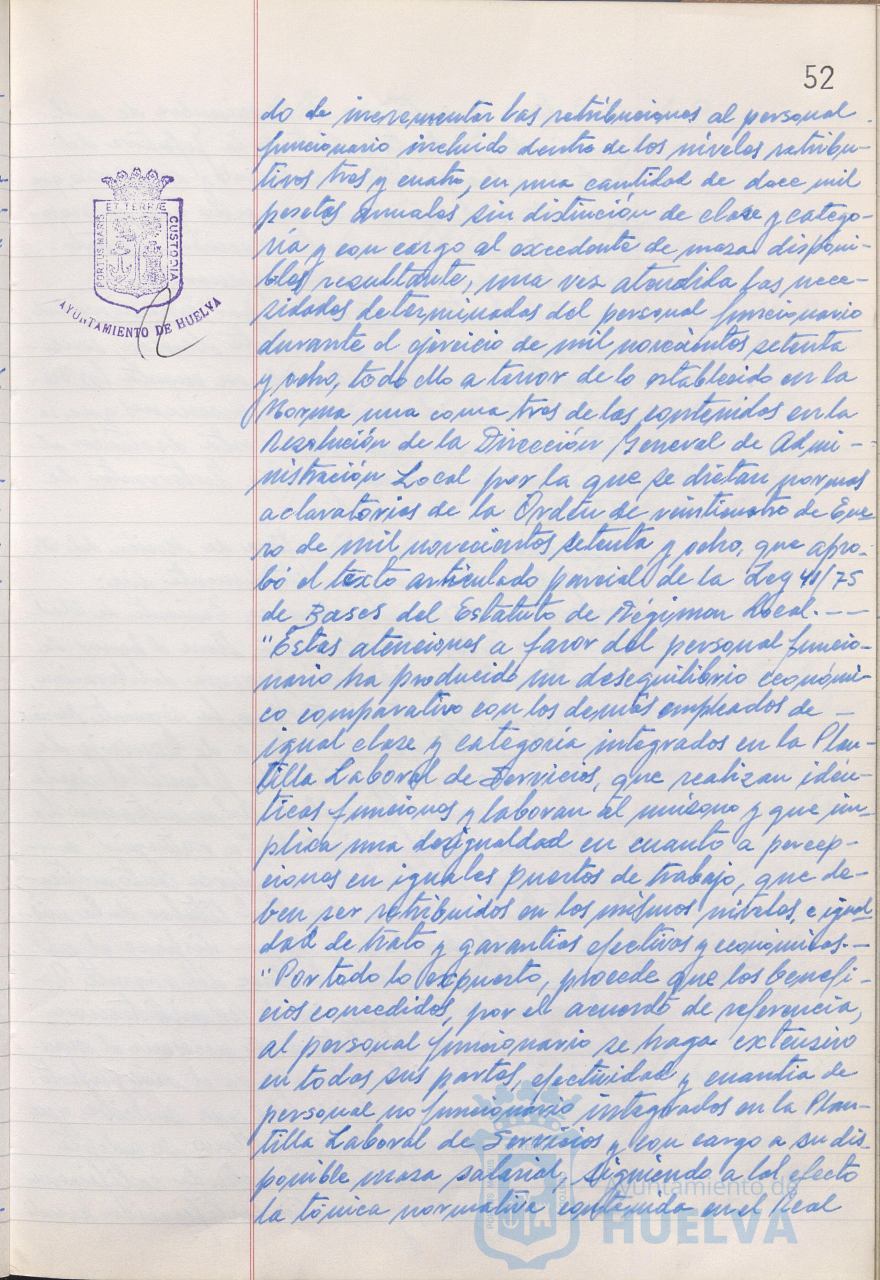 52
do de incrementar las retribuciones al personal
funcionario incluido dentro de los niveles retribu-
tivos tres y cuatro, en una cantidad de doce mil
pesetas anuales sin distinción de clase y catego-
ría y con cargo al excedente de masa disponi-
bles resultante, una vez atendida las nece-
sidades determinadas del personal funcionario
durante el ejercicio de mil novecientos setenta
y ocho, todo ello a tenor de lo establecido en la
Norma una coma tres de las contenidas en la
Resolución de la Dirección General de Admi-
nistración Local por la que se dictan normas
aclaratorias de la Orden de veinticuatro de Ene-
ro de mil novecientos setenta y ocho, que apro-
bó el texto articulado parcial de la Ley 41/75
de Bases del Estatuto de Régimen Local.---
"Estas atenciones a favor del personal funcio-
nario ha producido un desequilibrio económi-
co comparativo con los demás empleados de -
igual clase y categoría integrados en la Plan-
tilla Laboral de Servicios, que realizan idén-
ticas funciones y laboran al unísono y que im-
plica una desigualdad en cuanto a percep-
ciones en iguales puestos de trabajo, que de-
ben ser retribuidos en los mismos niveles, e igual-
dad de trato y garantías efectivas y económicas.-
"Por todo lo expuesto, procede que los benefi-
cios concedidos, por el acuerdo de referencia,
al personal funcionario se haga extensivo
en todas sus partes, efectividad y cuantía de
personal no funcionario integrados en la Plan-
tilla Laboral de Servicios y con cargo a su dis-
ponible masa salarial, siguiendo a tal efecto
la tónica normativa contenida en el Real
PORTUS MARIS
ET TERRÆ
CUSTODIA
AYUNTAMIENTO DE HUELVA
Ayuntamiento de
HUELVA